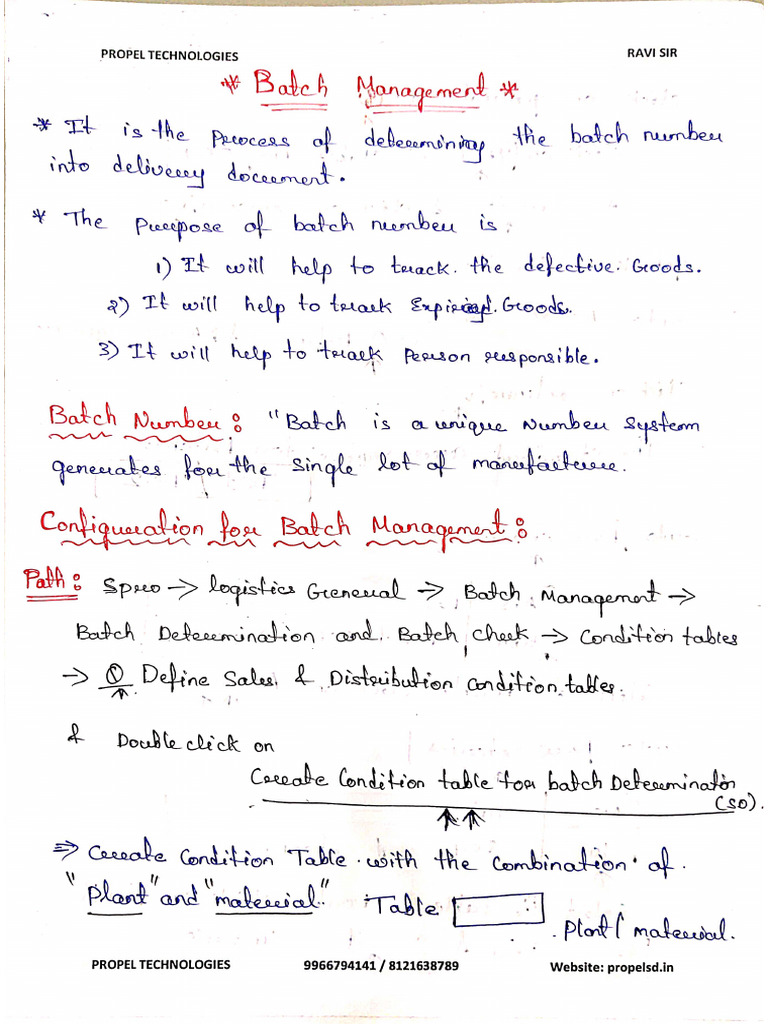 PROPEL TECHNOLOGIES RAVI SIR
* Batch Management *
* It is the Process of determining the batch number
into delivery document.
* The purpose of batch number is
1) It will help to track the defective Goods.
2) It will help to track Expired Goods.
3) It will help to track Person responsible.
Batch Number: "Batch is a unique number system
generates for the single lot of manufacture.
Configuration for Batch Management:
Path: Spro → logistics General → Batch Management →
Batch Determination and Batch check → Condition tables
→ ① Define Sales & Distribution condition tables.
& Double click on
Create Condition table for batch Determination
(SD).
⇒ Create Condition Table with the combination of
"Plant" and "material" Table
Plant / material.
PROPEL TECHNOLOGIES 9966794141 / 8121638789 Website: propelsd.in